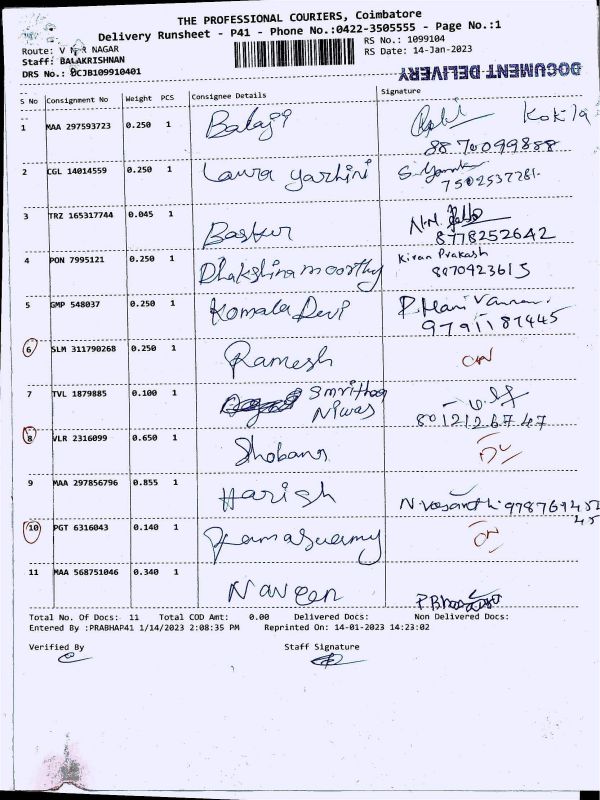 THE PROFESSIONAL COURIERS, Coimbatore
Delivery Runsheet - P41 - Phone No.:0422-3505555 - Page No.:1
Route: V N R NAGAR
RS No.: 1099104
Staff: BALAKRISHNAN
RS Date: 14-Jan-2023
DRS No.: DCJB109910401
DOCUMENT DELIVERY
S No Consignment No Weight PCS Consignee Details Signature
1 MAA 297593723 0.250 1 Balaji Kokila
8870099888
2 CGL 14014559 0.250 1 Laura yarhini
7502537281.
3 TRZ 165317744 0.045 1 Baskur N.N.
8778252642
4 PON 7995121 0.250 1 Dhakshinamoorthy Kiran Prakash
8870423615
5 GMP 548037 0.250 1 Komala Devi P. Hari Vannan.
9791187445
6 SLM 311790268 0.250 1 Ramesh
7 TVL 1879885 0.100 1 Smritha
Niwas
8012126747
8 VLR 2316099 0.650 1 Shobana
9 MAA 297856796 0.855 1 Harish N. Vasanthi
10 PGT 6316043 0.140 1 Ramaswamy
11 MAA 568751046 0.340 1 Naveen
Total No. Of Docs: 11 Total COD Amt: 0.00 Delivered Docs: Non Delivered Docs:
Entered By :PRABHAP41 1/14/2023 2:08:35 PM Reprinted On: 14-01-2023 14:23:02
Verified By Staff Signature